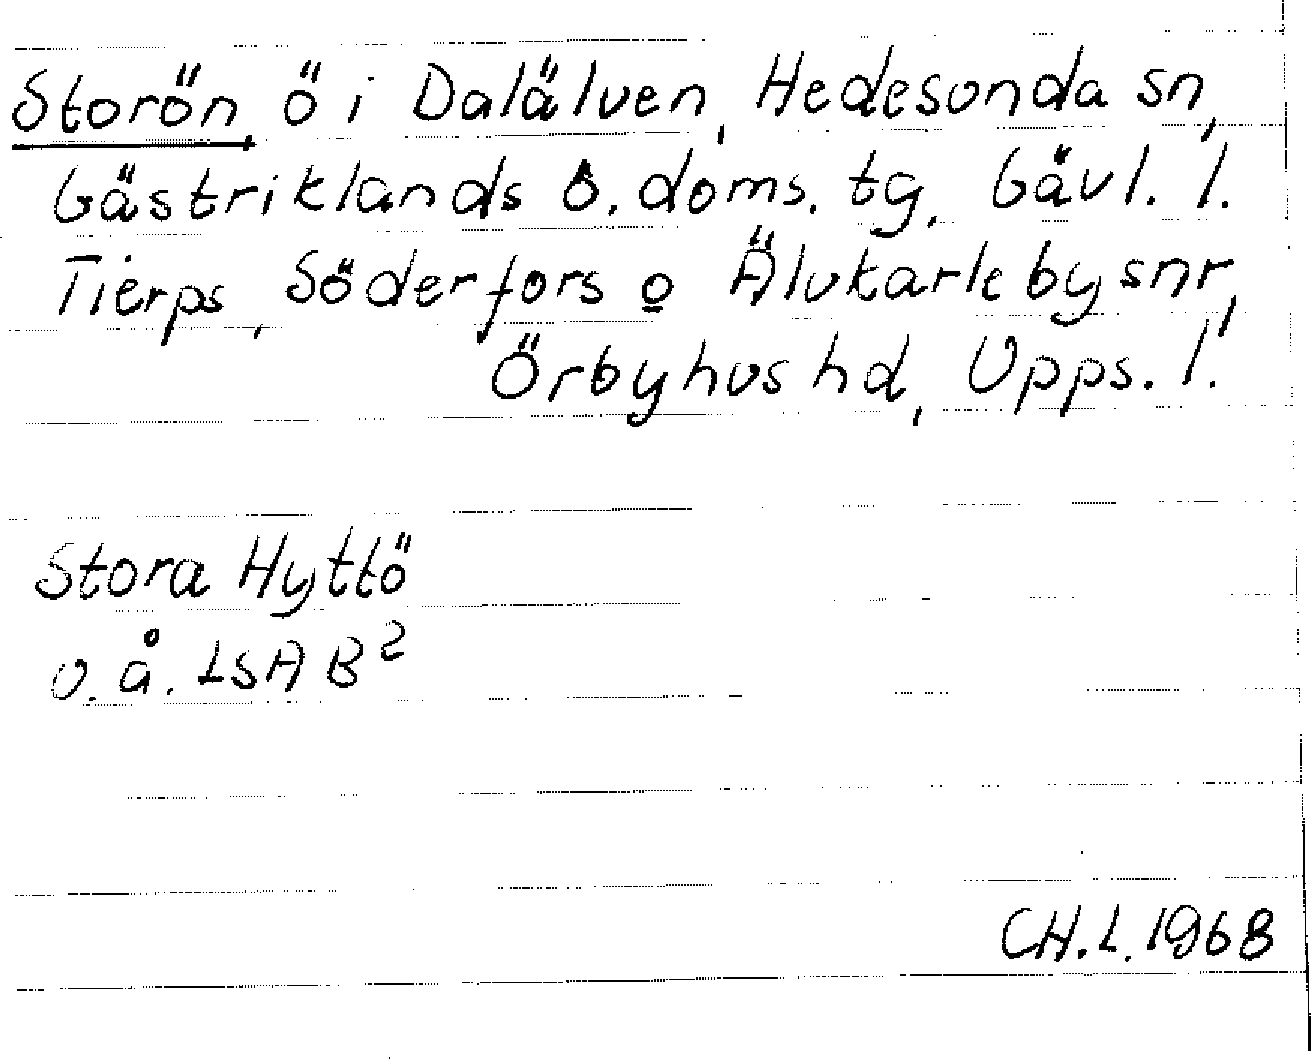 Storön, ö i Dalälven, Hedesunda sn,
Gästriklands ö. doms. tg, Gävl. l.
Tierps, Söderfors o Älvkarleby snr,
Örbyhus hd, Upps. l.
Stora Hyttö
u. å. LSA B²
CH.L. 1968